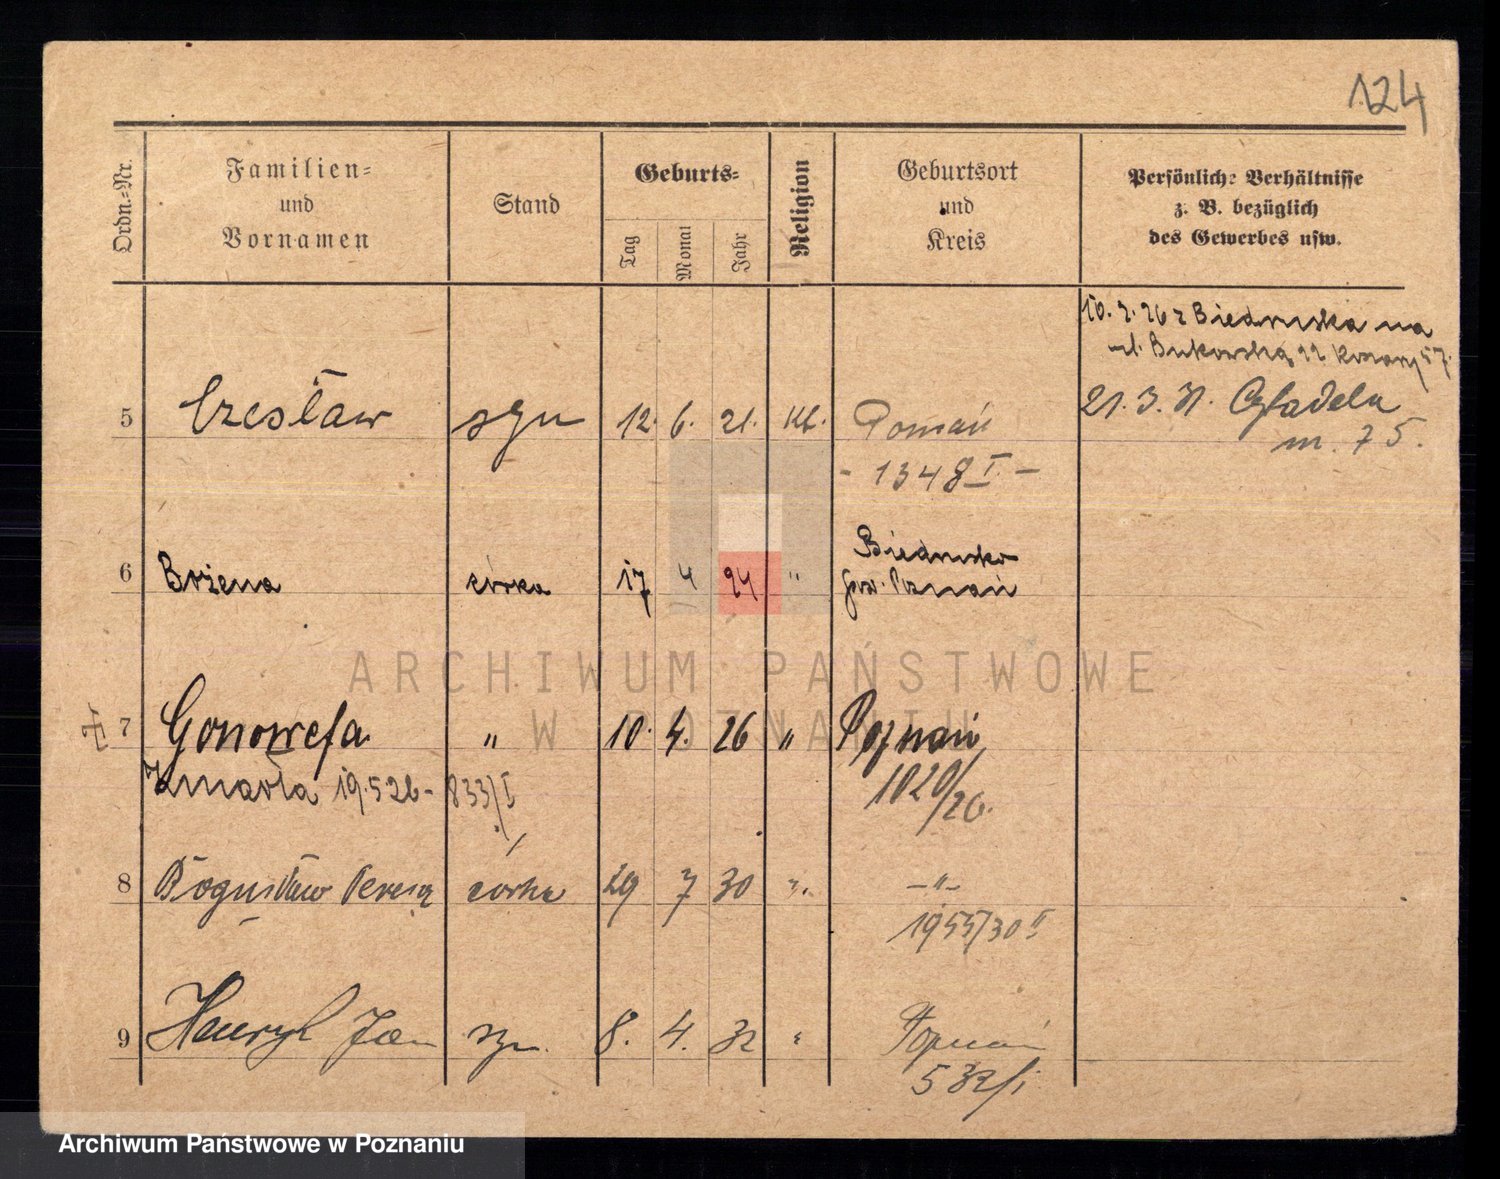 124
Ordn.-Nr.
Familien-
und
Vornamen
Stand
Geburts-
Tag
Monat
Jahr
Religion
Geburtsort
und
Kreis
Persönliche Verhältnisse
z. B. bezüglich
des Gewerbes usw.
10. 2. 26 z Biedruska na
ul. Bukowską 22
5 Czesław syn 12. 6. 21. kt. Poznań 21. 3. 31. Cytadela
- 1348 I - m. 75.
6 Bożena córka 17 4 24 " Biedrusko
pow. Poznań
7 Genowefa " 10. 4. 26 " Poznań
Zmarła 19.5 26 - 833/I 1020/26.
8 Bogusława Teresa córka 29 7 30 " -"-
1955/30 II
9 Henryk Jan syn 8. 4. 32 " Poznań
532/I
ARCHIWUM PAŃSTWOWE
W POZNANIU
Archiwum Państwowe w Poznaniu